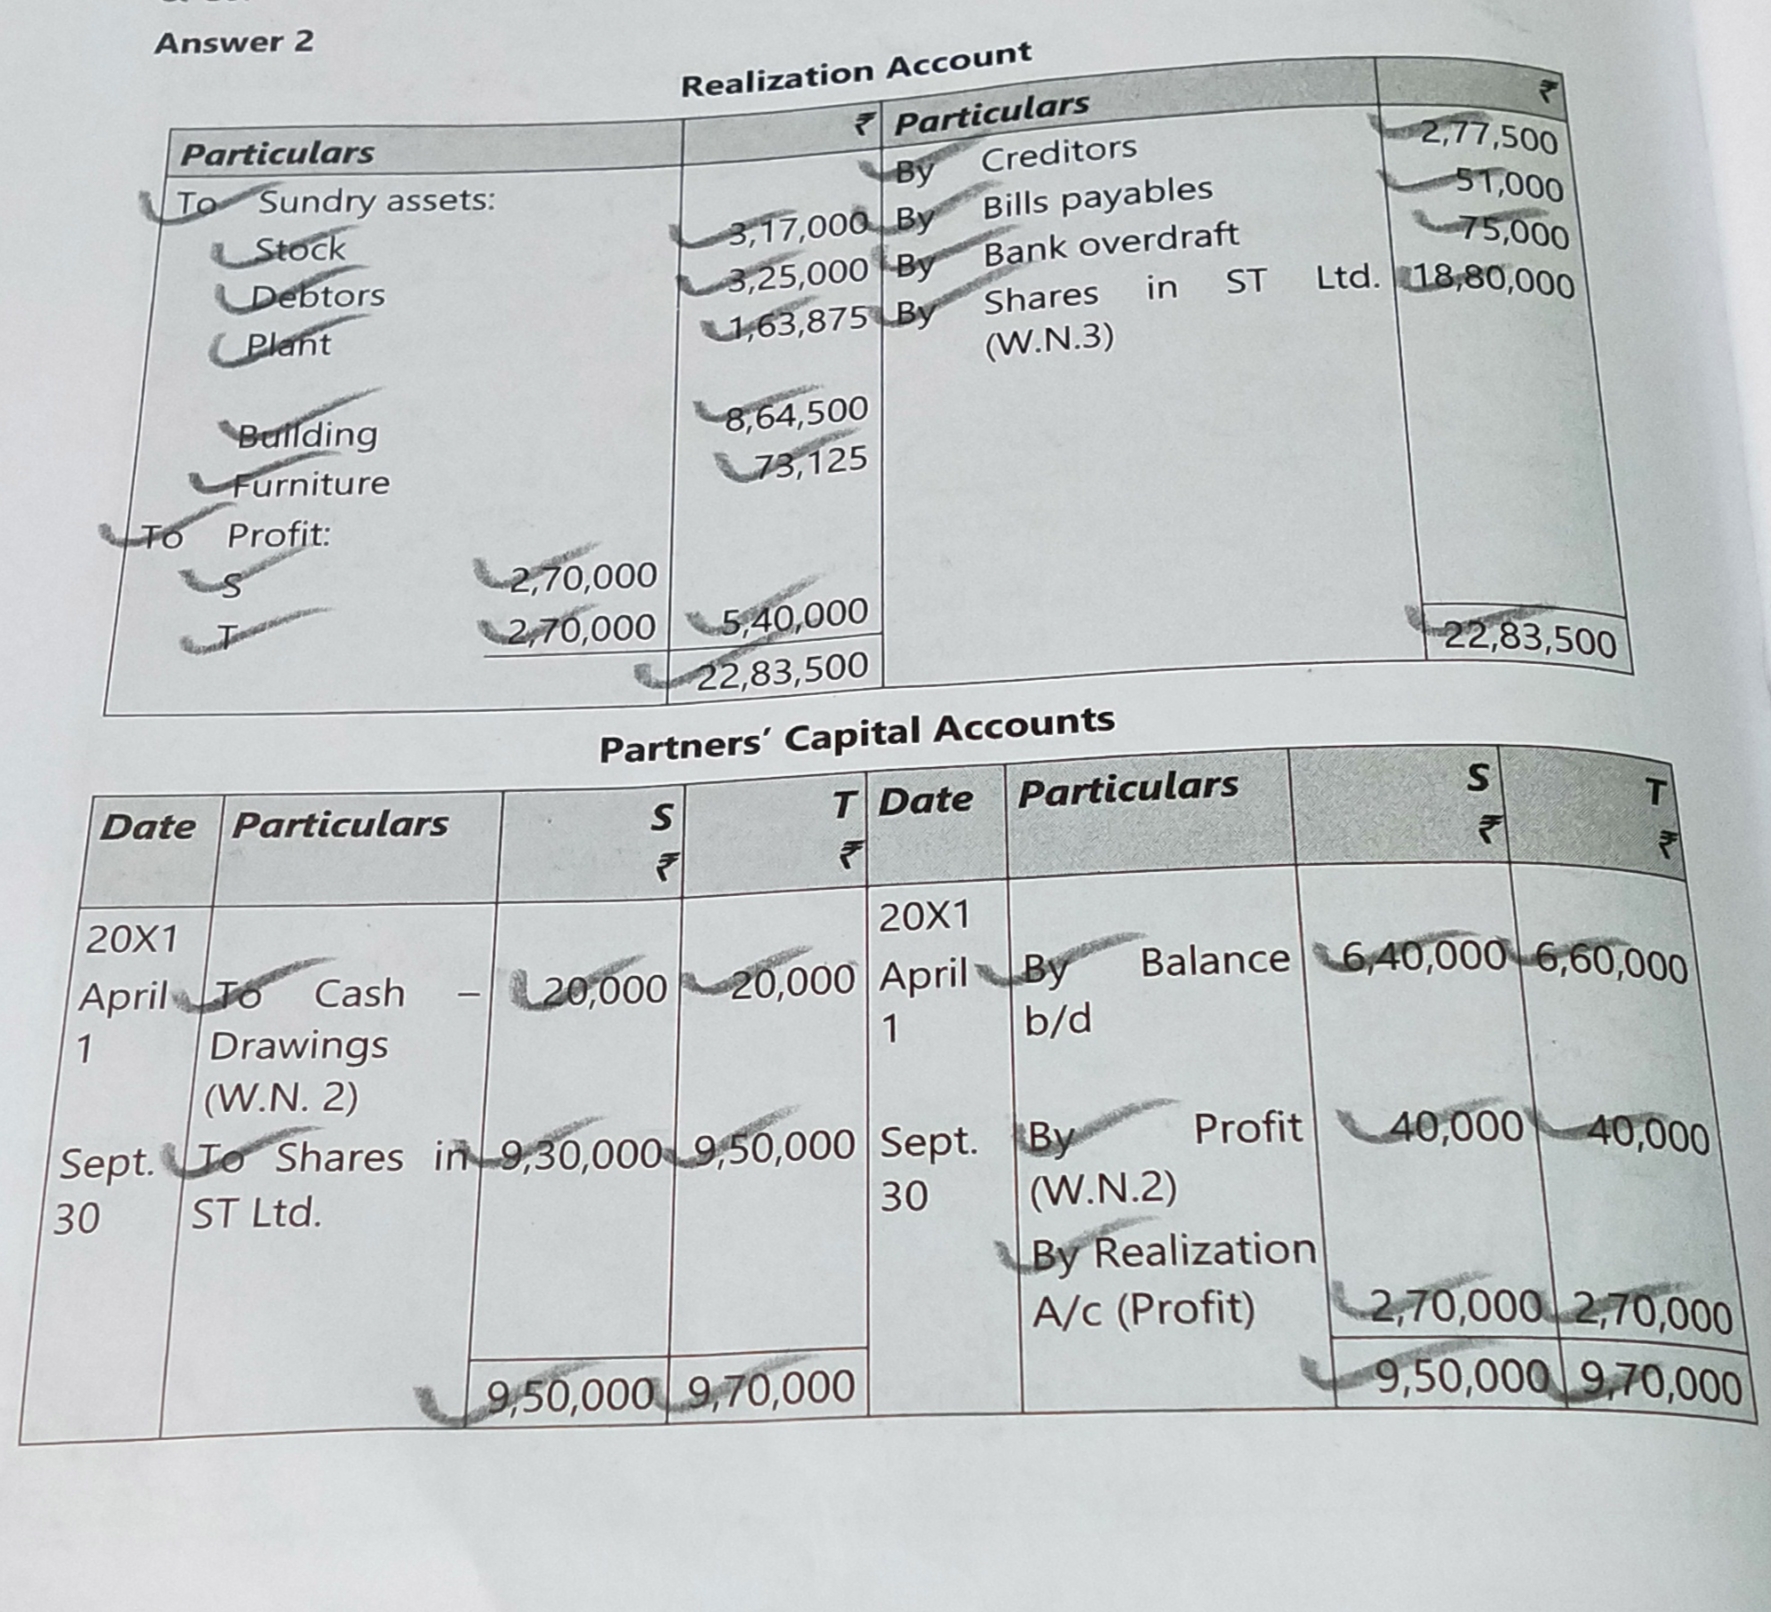 Answer 2
Realization Account
Particulars ₹ Particulars ₹
To Sundry assets: By Creditors 2,77,500
Stock 3,17,000 By Bills payables 51,000
Debtors 3,25,000 By Bank overdraft 75,000
Plant 1,63,875 By Shares in ST Ltd. 18,80,000
(W.N.3)
Building 8,64,500
Furniture 73,125
To Profit:
S 2,70,000
T 2,70,000 5,40,000
22,83,500 22,83,500
Partners' Capital Accounts
Date Particulars S T Date Particulars S T
₹ ₹ ₹ ₹
20X1 20X1
April To Cash – 20,000 20,000 April By Balance 6,40,000 6,60,000
1 Drawings 1 b/d
(W.N. 2)
Sept. To Shares in 9,30,000 9,50,000 Sept. By Profit 40,000 40,000
30 ST Ltd. 30 (W.N.2)
By Realization
A/c (Profit) 2,70,000 2,70,000
9,50,000 9,70,000 9,50,000 9,70,000